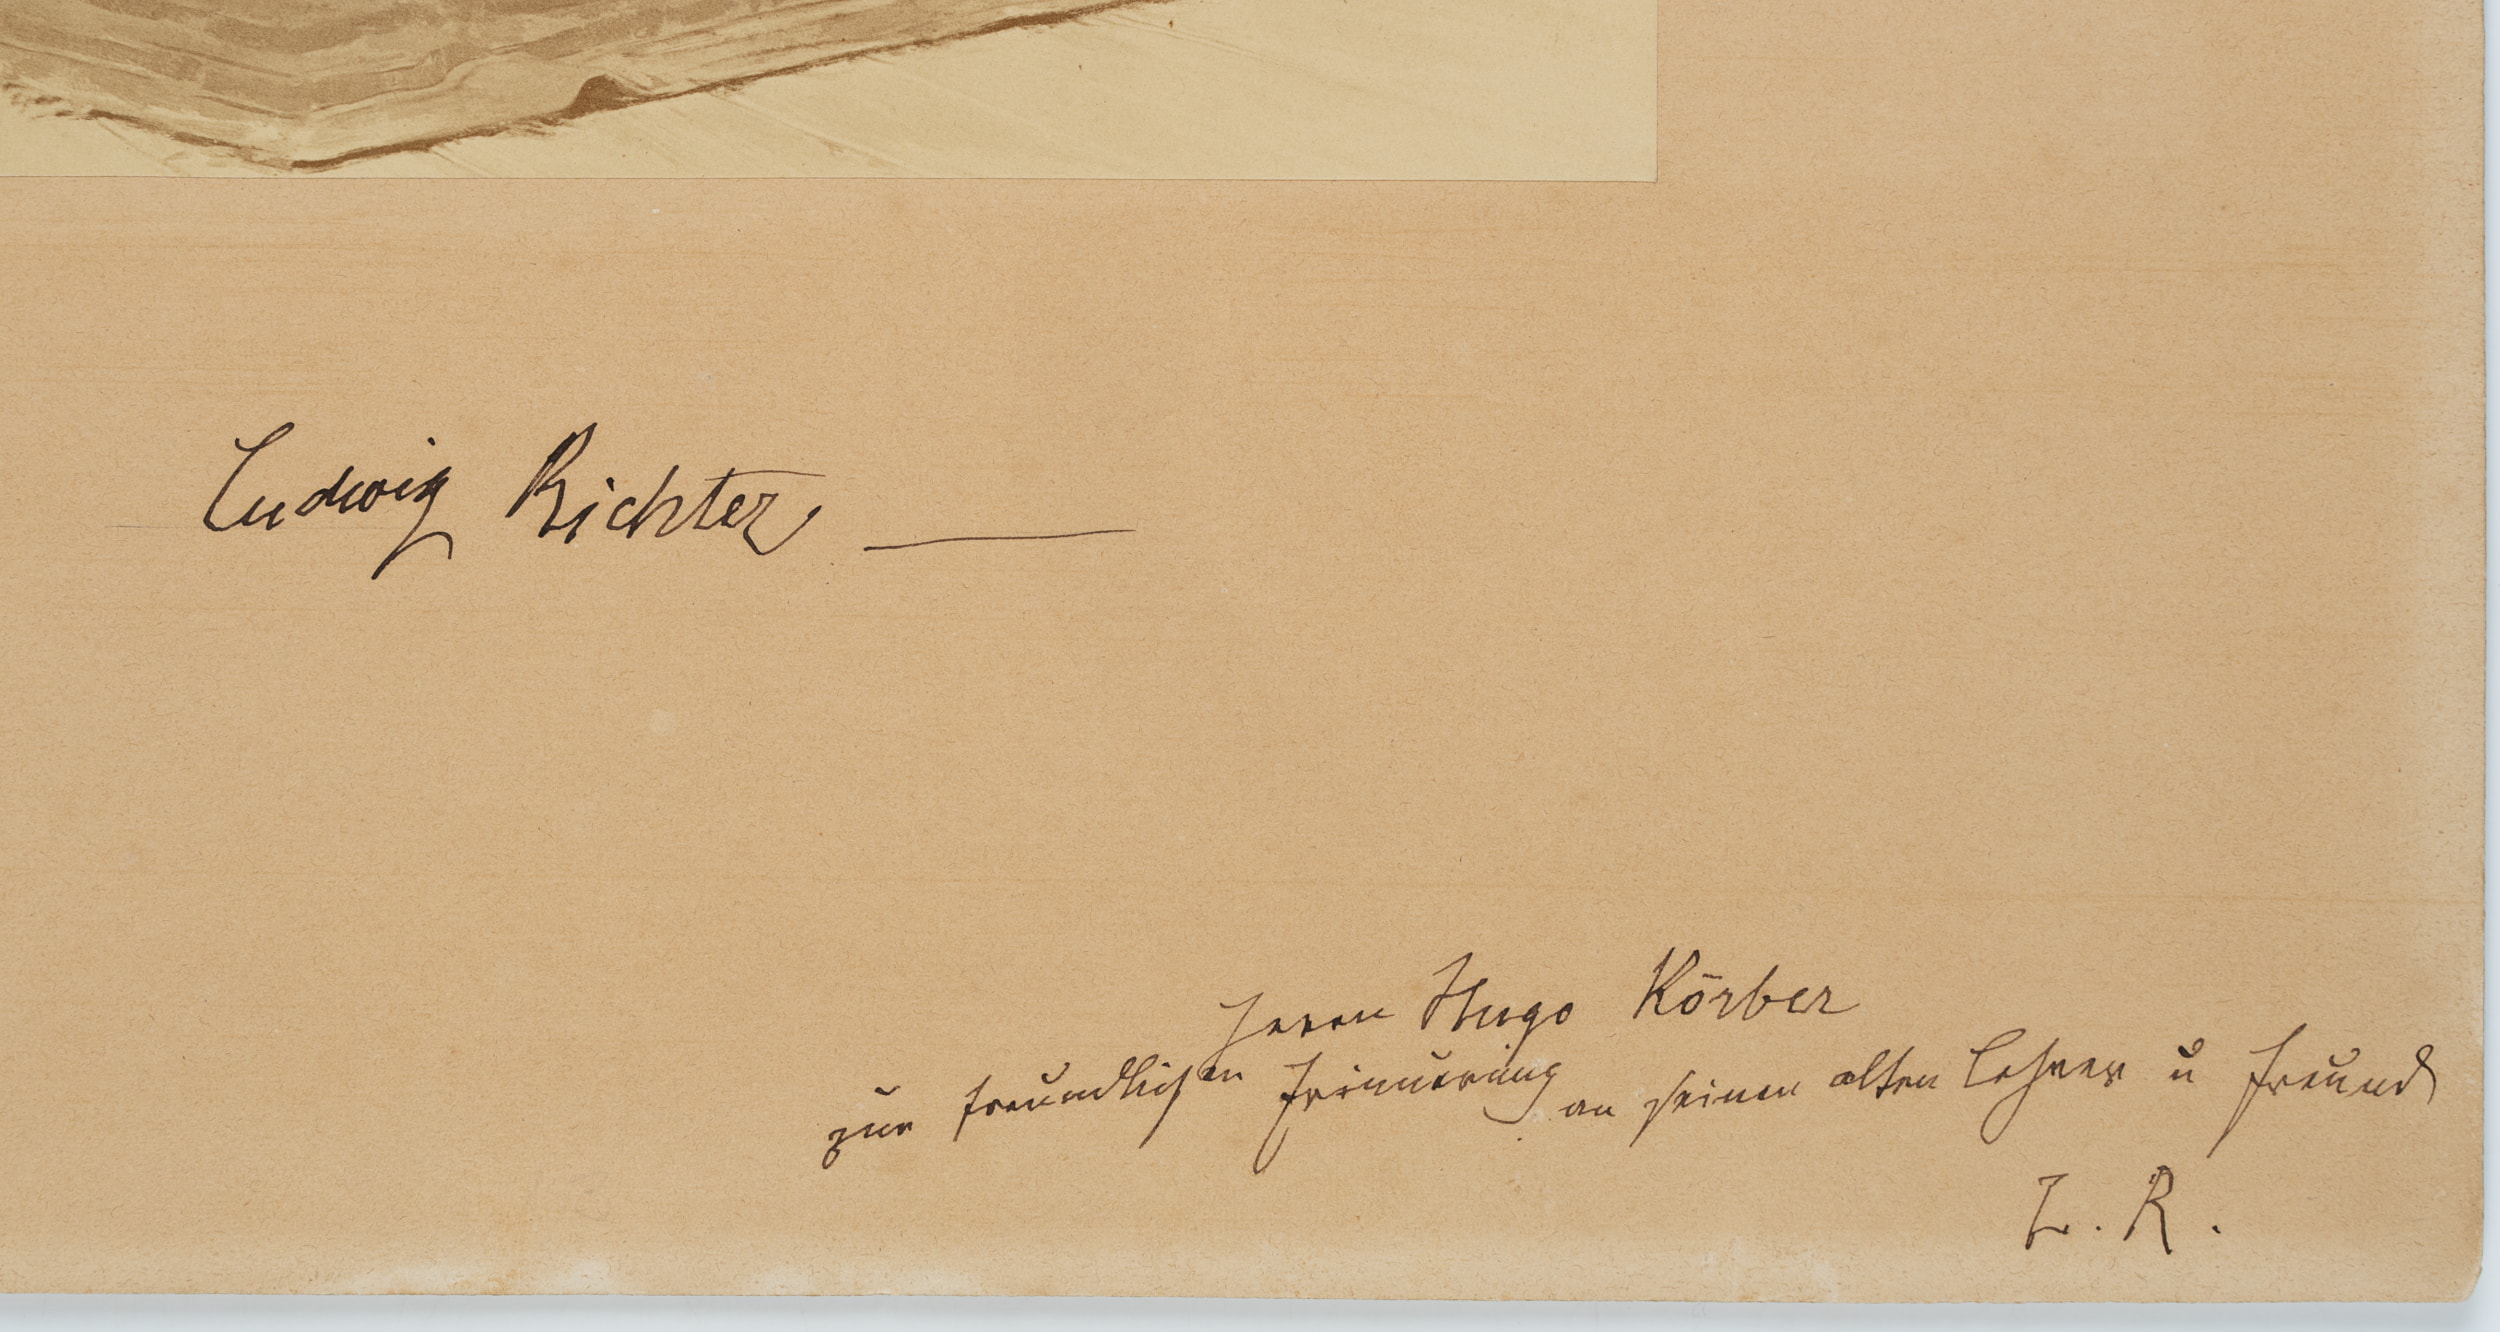 Ludwig Richter
Herrn Hugo Körber
zur freundlichen Erinnerung an seinen alten Lehrer u Freund
L. R.